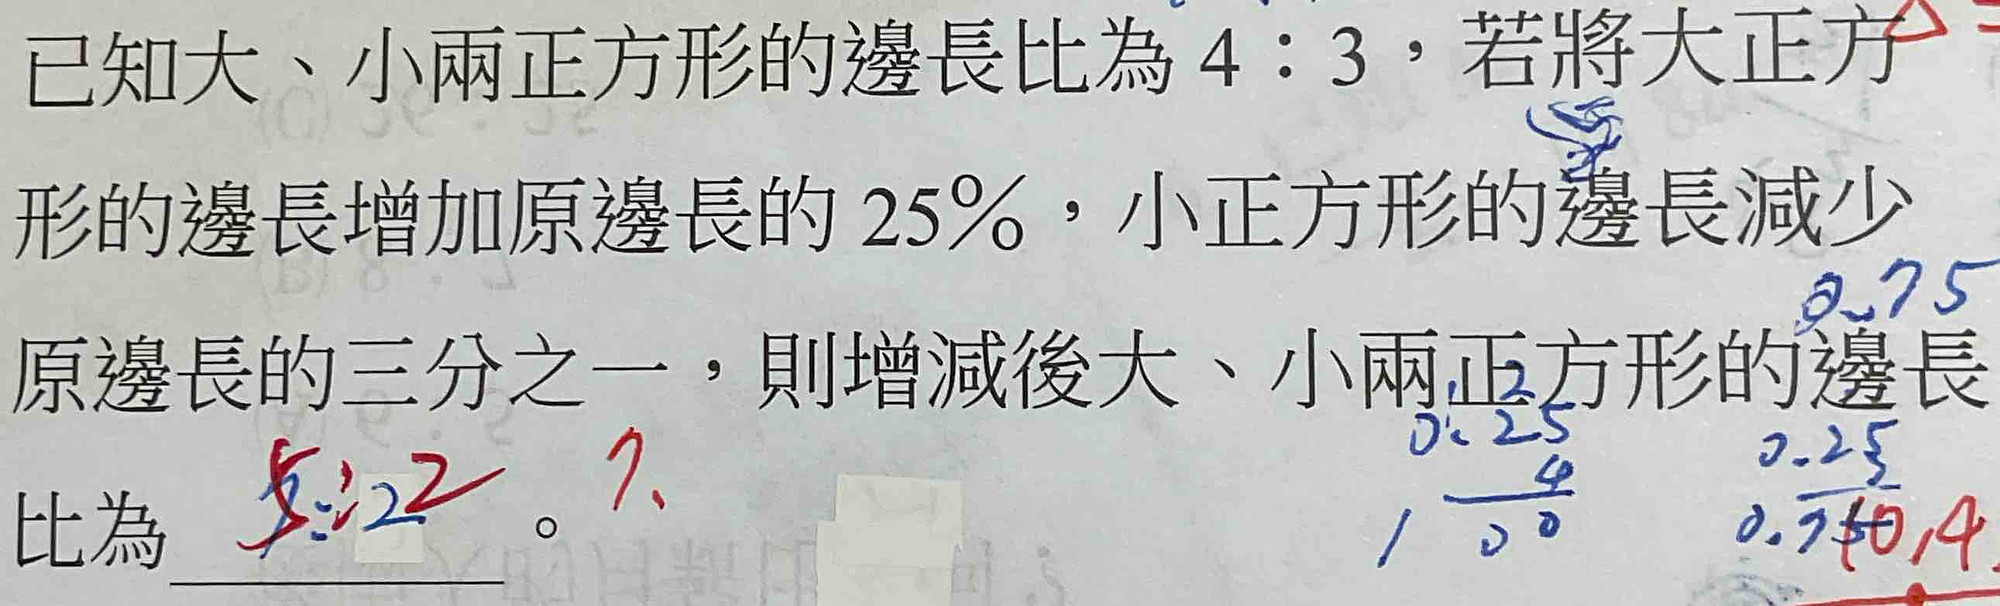 已知大、小兩正方形的邊長比為 4：3，若將大正方
形的邊長增加原邊長的 25%，小正方形的邊長減少
0.75
原邊長的三分之一，則增減後大、小兩正方形的邊長
0.25
4
1 00
0.25
3
0.75
(0,4
比為 5:2 。